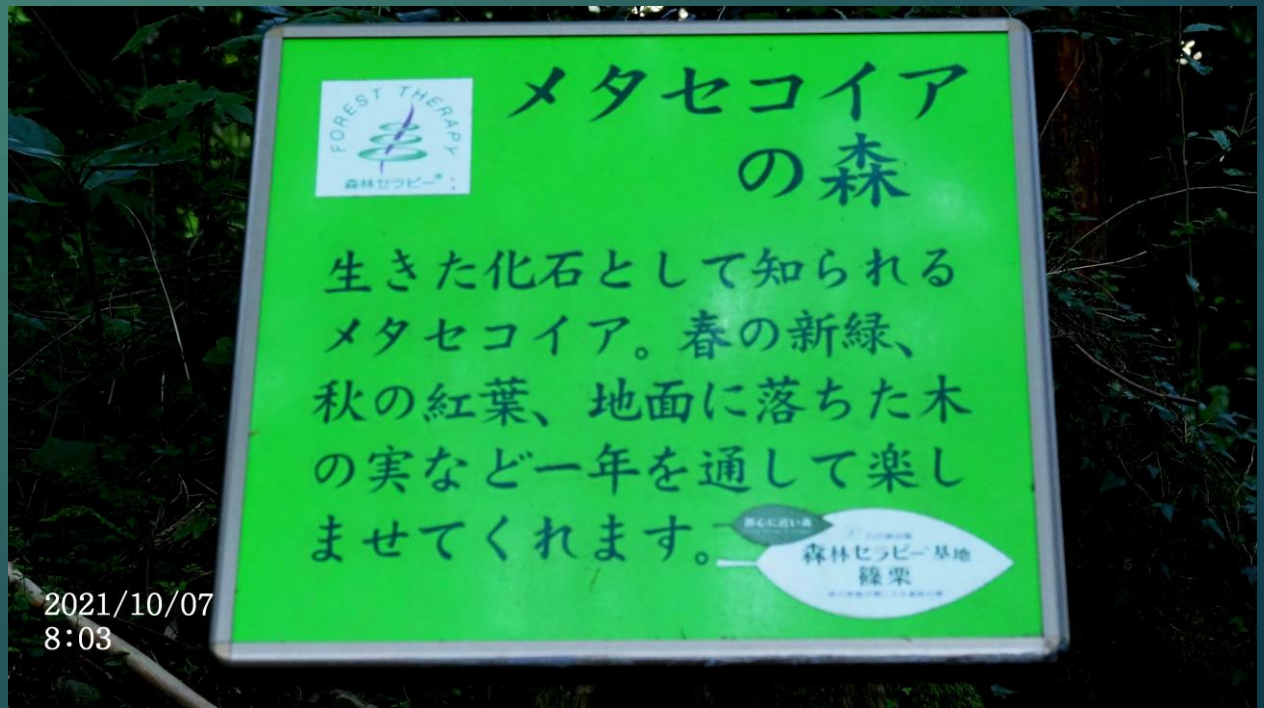 FOREST THERAPY
森林セラピー®
メタセコイア
の森
生きた化石として知られる
メタセコイア。春の新緑、
秋の紅葉、地面に落ちた木
の実など一年を通して楽し
ませてくれます。
都心に近い森
森林セラピー®基地
篠栗
2021/10/07
8:03